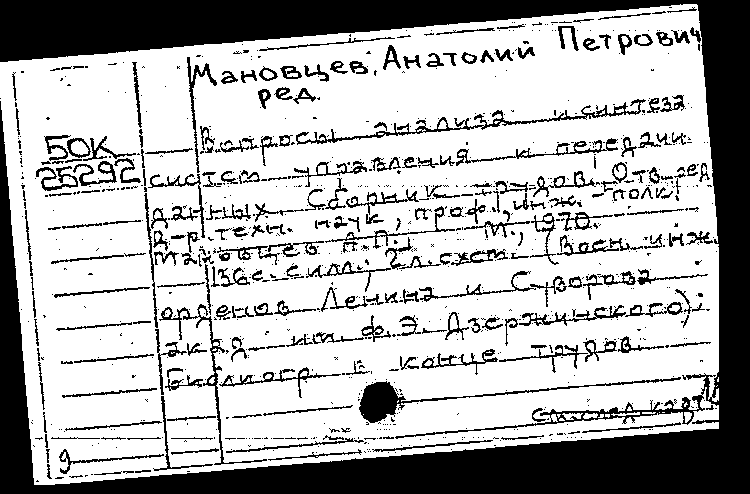 Мановцев, Анатолий Петрович
ред.
Вопросы анализа и синтеза
БОК
25292
систем управления и передачи
данных. Сборник трудов. Отв. ред.
д-р техн. наук, проф., инж.-полк.
Мановцев А.П. М., 1970.
136 с. с илл.; 2 л. схем. (Воен. инж.
орденов Ленина и Суворова
акад. им. Ф.Э. Дзержинского).
Библиогр. в конце трудов.
См. след. карт.
9